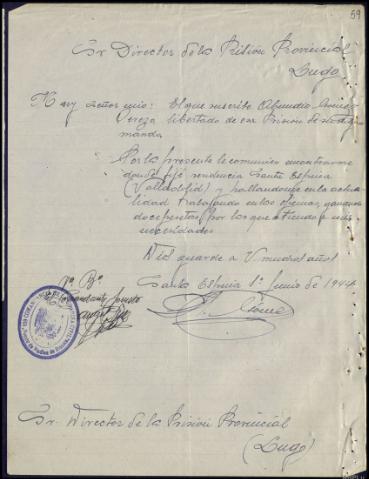 59
Sr Director de la Prisión Provincial
Lugo
Muy señor mio: El que suscribe
libertado de esa Prisión de
manda
Por la presente le comunico encontrarme
donde fijé residencia Santa Espina
(Valladolid) y hallandome en la actu
alidad trabajando en los
por lo que atiendo a mis
necesidades
Dios guarde a V muchos años
Santa Espina 1º Junio de 1944
Vº Bº
El Comandante puesto
Sr Director de la Prisión Provincial
(Lugo)